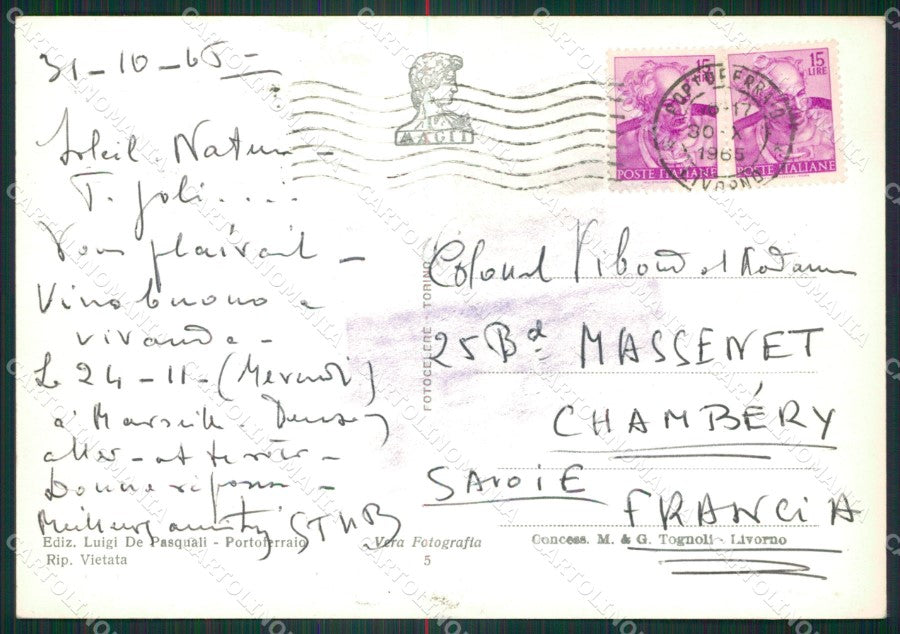 31-10-65
Soleil. Nature -
T. joli.....
Vous plairait -
Vino buono e
vivande -
Le 24-11-(Mercredi)
à Marseille.
Bonne réponse -
Meilleures amitiés
MAGIT
15 LIRE
15 LIRE
PORTOFERRAIO
-17
30 X
1965
LIVORNO
POSTE ITALIANE
POSTE ITALIANE
Colonel Viboud et Madame
25 Bd MASSENET
CHAMBÉRY
SAVOIE
FRANCIA
FOTOCELERE - TORINO
Ediz. Luigi De Pasquali - Portoferraio
Rip. Vietata
Vera Fotografia
5
Concess. M. & G. Tognoli - Livorno
CARTOLINOMANIA